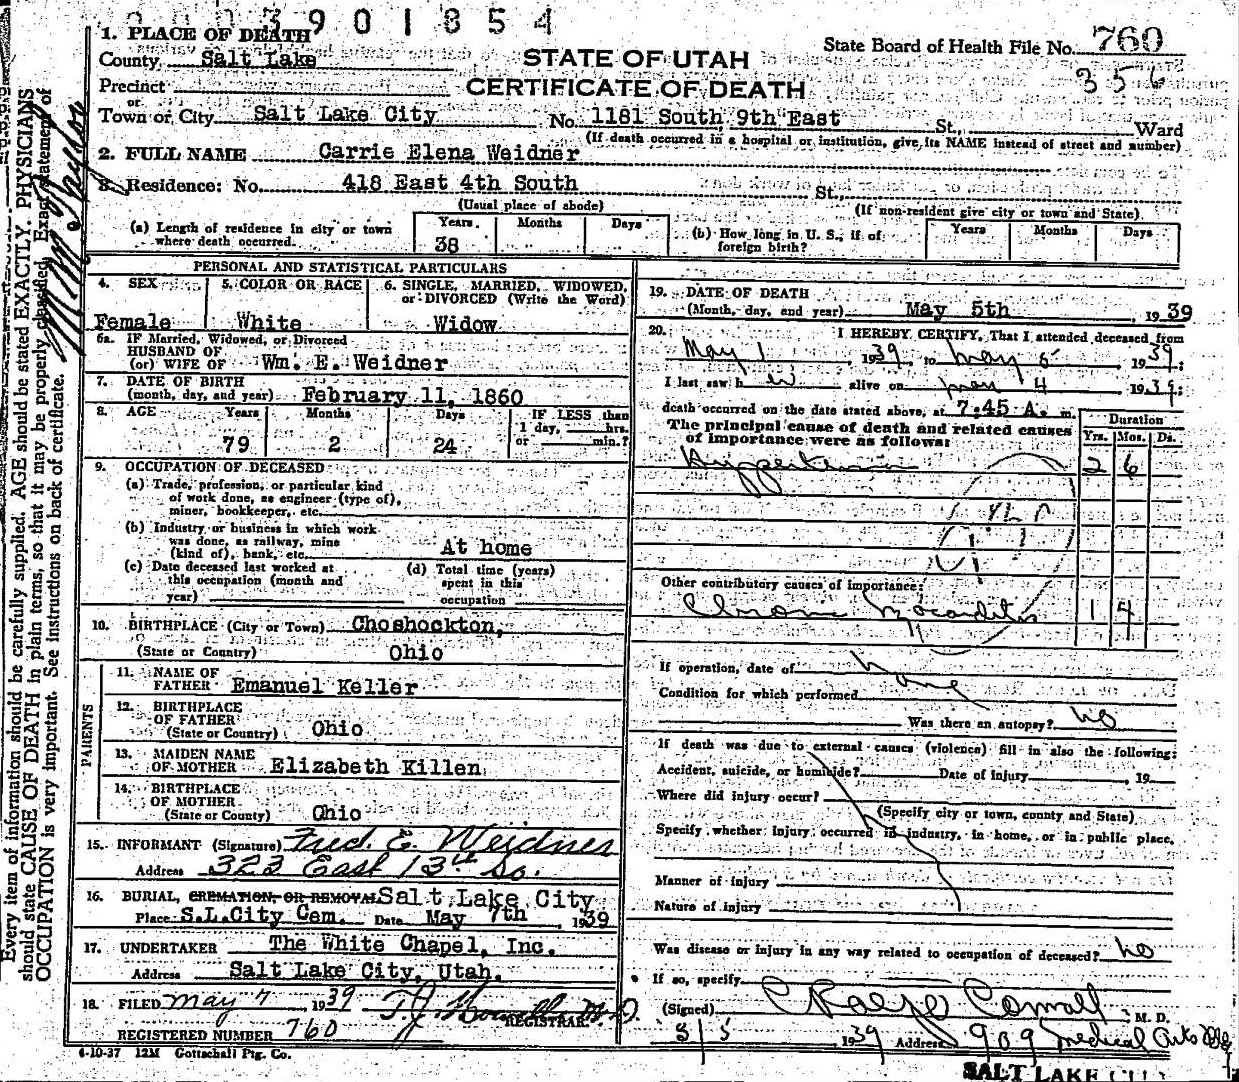 3901854
1. PLACE OF DEATH
County Salt Lake
STATE OF UTAH
CERTIFICATE OF DEATH
State Board of Health File No. 760
356
Precinct
or
Town or City Salt Lake City No. 1181 South 9th East St., Ward
(If death occurred in a hospital or institution, give its NAME instead of street and number)
2. FULL NAME Carrie Elena Weidner
3. Residence: No. 418 East 4th South St.,
(Usual place of abode) (If non-resident give city or town and State)
(a) Length of residence in city or town where death occurred. Years 38 Months Days
(b) How long in U. S., if of foreign birth? Years Months Days
PERSONAL AND STATISTICAL PARTICULARS
4. SEX Female
5. COLOR OR RACE White
6. SINGLE, MARRIED, WIDOWED, or DIVORCED (Write the Word) Widow
6a. IF Married, Widowed, or Divorced
HUSBAND OF
(or) WIFE OF Wm. E. Weidner
7. DATE OF BIRTH
(month, day, and year) February 11, 1860
8. AGE Years 79 Months 2 Days 24 IF LESS than 1 day, hrs. or min.?
9. OCCUPATION OF DECEASED
(a) Trade, profession, or particular kind
of work done, as engineer (type of),
miner, bookkeeper, etc.
(b) Industry or business in which work
was done, as railway, mine
(kind of), bank, etc. At home
(c) Date deceased last worked at
this occupation (month and
year)
(d) Total time (years)
spent in this
occupation
10. BIRTHPLACE (City or Town) Choshockton,
(State or Country) Ohio
PARENTS
11. NAME OF
FATHER Emanuel Keller
12. BIRTHPLACE
OF FATHER
(State or Country) Ohio
13. MAIDEN NAME
OF MOTHER Elizabeth Killen
14. BIRTHPLACE
OF MOTHER
(State or Country) Ohio
15. INFORMANT (Signature) Fred. E. Weidner
Address 323 East 13th So.
16. BURIAL, CREMATION, OR REMOVAL Salt Lake City
Place S.L.City Cem. Date May 7th, 1939
17. UNDERTAKER The White Chapel, Inc.
Address Salt Lake City, Utah.
18. FILED May 7, 1939
REGISTRAR.
REGISTERED NUMBER 760
4-10-37 12M Gottschall Ptg. Co.
19. DATE OF DEATH
(Month, day, and year) May 5th, 1939
20. I HEREBY CERTIFY, That I attended deceased from
May 1, 1939, to May 5, 1939;
I last saw her alive on May 4 1939;
death occurred on the date stated above, at 7:45 A. m.
The principal cause of death and related causes
of importance were as follows:
Duration
Yrs. Mos. Ds.
Hyppertension 2 6
Other contributory causes of importance:
Chronic Myocarditis 1 4
If operation, date of none
Condition for which performed
Was there an autopsy? no
If death was due to external causes (violence) fill in also the following:
Accident, suicide, or homicide? Date of injury, 19
Where did injury occur?
(Specify city or town, county and State)
Specify whether injury occurred in industry, in home, or in public place.
Manner of injury
Nature of injury
Was disease or injury in any way related to occupation of deceased? no
If so, specify
(Signed) M. D.
5/5 1939 Address 909 Medical Arts Bldg
SALT LAKE CITY
Every item of information should be carefully supplied. AGE should be stated EXACTLY. PHYSICIANS
should state CAUSE OF DEATH in plain terms, so that it may be properly classified. Exact statement of
OCCUPATION is very important. See instructions on back of certificate.